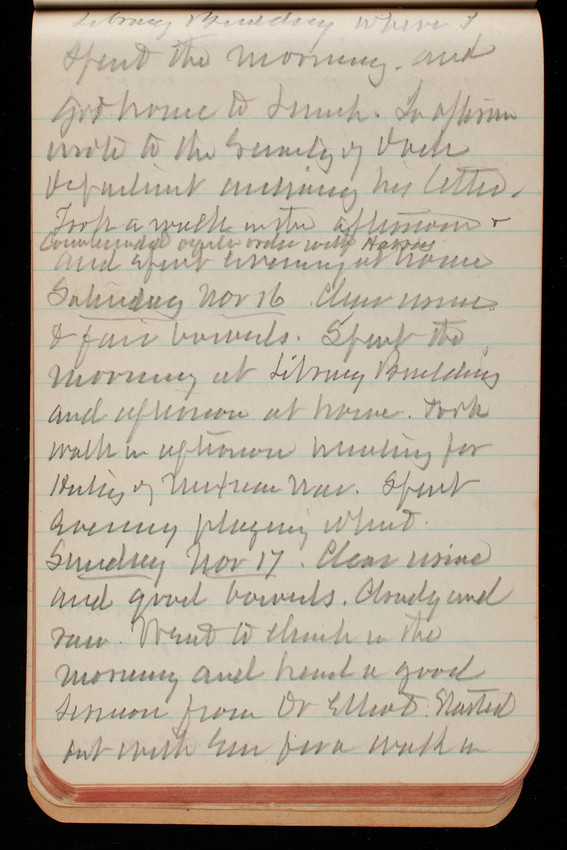 Library Building where I
spent the morning. and
got home to lunch. In afternoon
wrote to the Secretary of
department his letter.
Took a walk in the afternoon &
with
and spent evening at home
Saturday Nov 16. Clear urine
& fair bowels. Spent the
morning at Library Building
and afternoon at home. Took
walk in afternoon hunting for
History of Mexican War. Spent
evening playing whist.
Sunday Nov 17. Clear urine
and good bowels. Cloudy and
raw. Went to church in the
morning and heard a good
sermon from Dr Elliot. Started
out with for a walk in